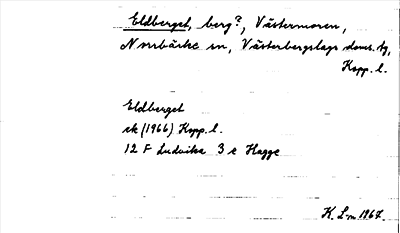 Eldberget, berg?, Västermoren,
Norrbärke sn, Västerbergslags doms. tg,
Kopp. l.
Eldberget
ek (1966) Kopp. l.
12 F Ludvika 3 e Hagge
K. L-m 1967.